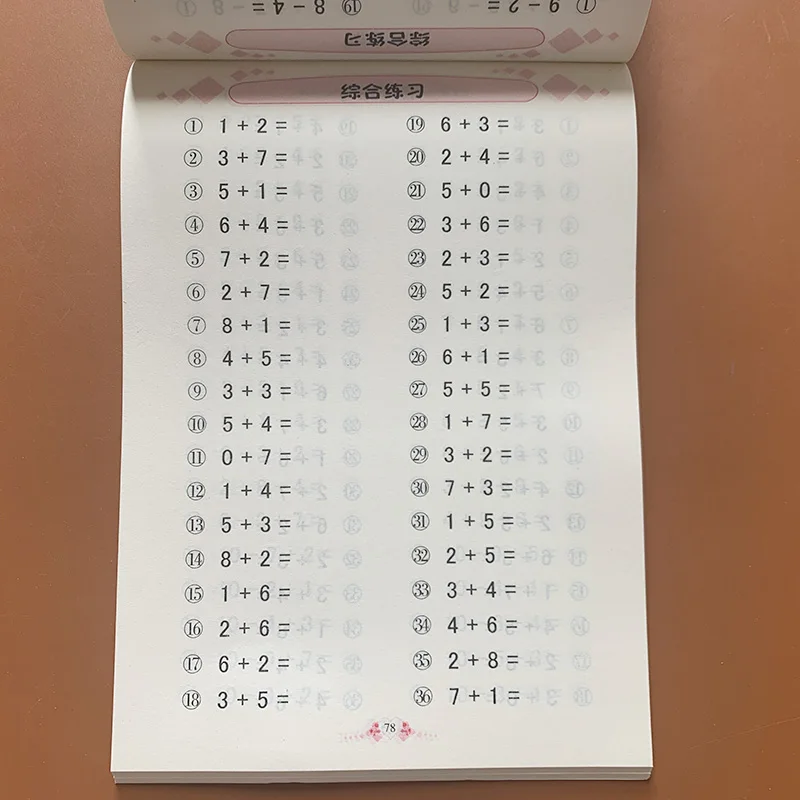 ① 9 - 2 =
⑲ 8 - 4 =
综合练习
综合练习
① 1 + 2 =
② 3 + 7 =
③ 5 + 1 =
④ 6 + 4 =
⑤ 7 + 2 =
⑥ 2 + 7 =
⑦ 8 + 1 =
⑧ 4 + 5 =
⑨ 3 + 3 =
⑩ 5 + 4 =
⑪ 0 + 7 =
⑫ 1 + 4 =
⑬ 5 + 3 =
⑭ 8 + 2 =
⑮ 1 + 6 =
⑯ 2 + 6 =
⑰ 6 + 2 =
⑱ 3 + 5 =
⑲ 6 + 3 =
⑳ 2 + 4 =
㉑ 5 + 0 =
㉒ 3 + 6 =
㉓ 2 + 3 =
㉔ 5 + 2 =
㉕ 1 + 3 =
㉖ 6 + 1 =
㉗ 5 + 5 =
㉘ 1 + 7 =
㉙ 3 + 2 =
㉚ 7 + 3 =
㉛ 1 + 5 =
㉜ 2 + 5 =
㉝ 3 + 4 =
㉞ 4 + 6 =
㉟ 2 + 8 =
㊱ 7 + 1 =
78